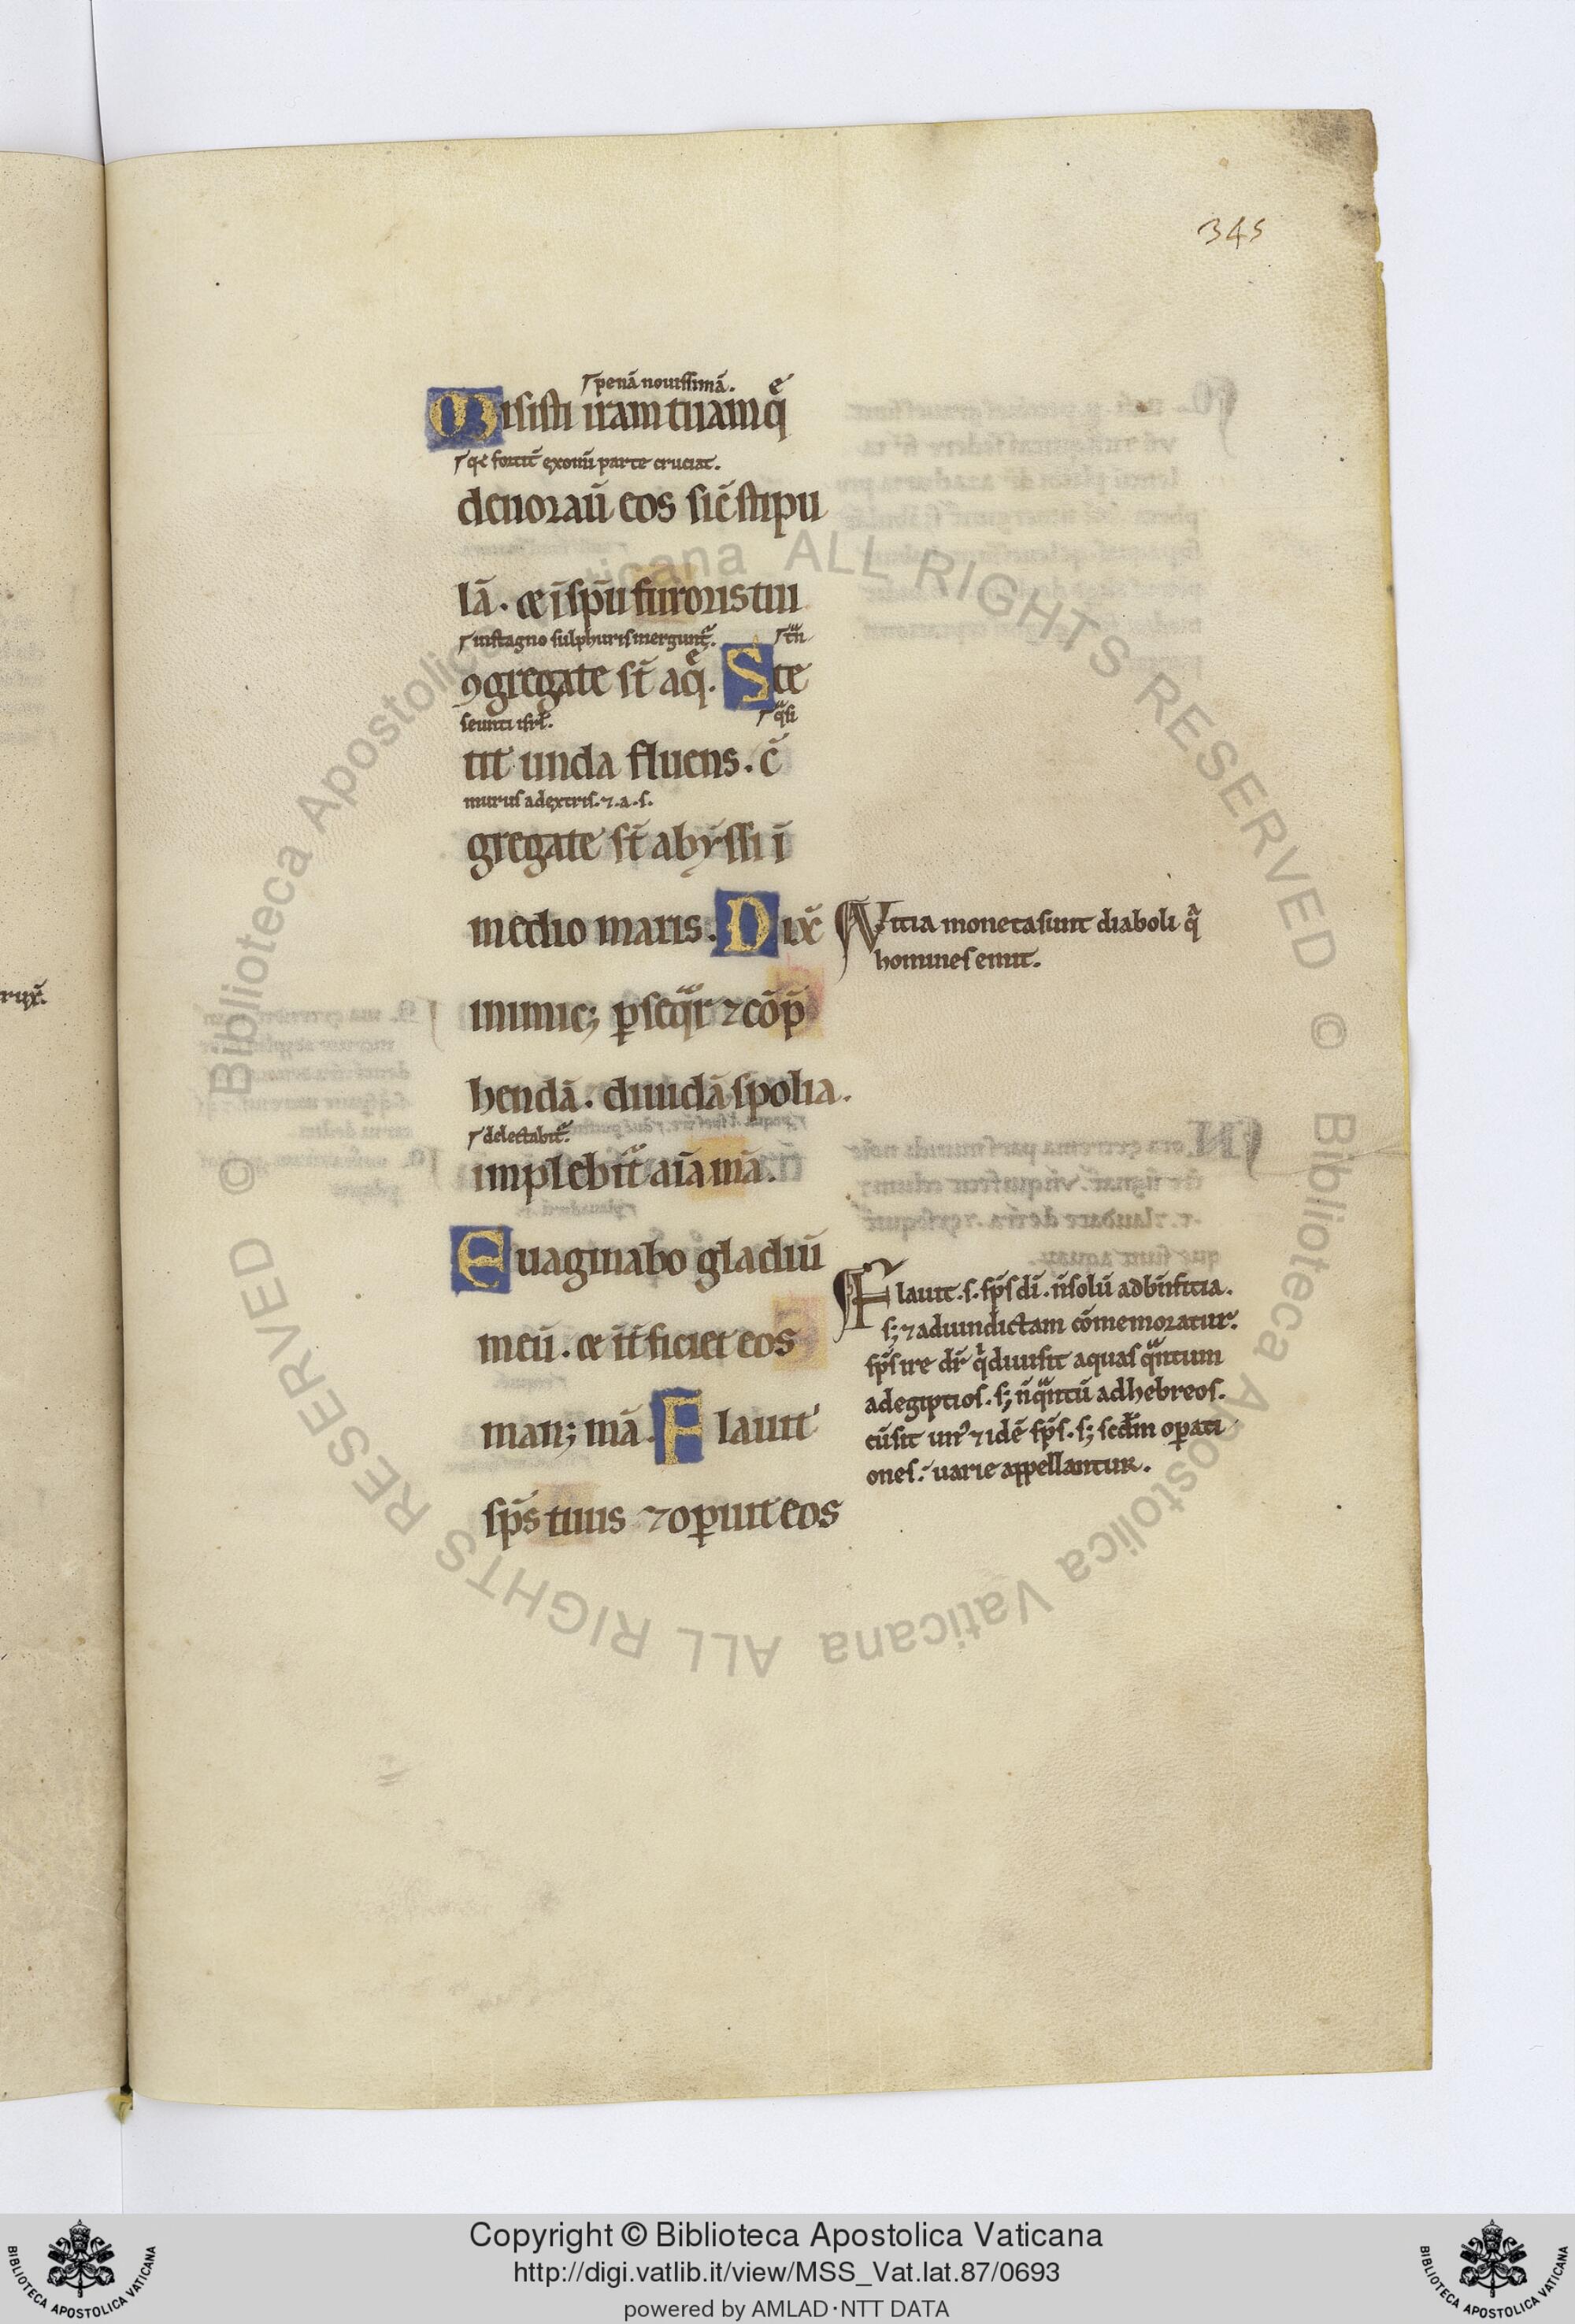 345
⁊ penā nouissimā.
Misisti iram tuam q̄e
⁊ qͥ fortit̄ ex oīū parte cruciat.
deuorau̅ eos sic̄ stipu
lā. & ī sp̅u furoris tui
⁊ in stagno sulphuris mergunt᷑. ⁊ tn̄
ꝯgregate st̄ aq̄e. Ste
seunti isrl̄. ⁊ qᷓsi
tit unda fluens. c̄
murus a dextris. ⁊. a. s.
gregate st̄ abyssi ī
medio maris. Dix̄
inimic; ꝑseqᷓr ⁊ cōp̄
hendā. diuidā spolia.
⁊ delectabit᷑.
implebit᷑ aīa mā.
Euaginabo gladiū
meū. & īt̄ficiet eos
man; mā. Flauit
sp̄s tuus ⁊ oꝑuit eos
Vitia moneta sunt diaboli qᷓ
homines emit.
Flauit. s. sp̄s dī. n̄ solū ad bn̄ficia.
s; ⁊ ad uindictam cōmemoratur.
sp̄s ire dr̄ qͥ diuisit aquas qᷓntum
ad egiptios. s; n̄ qᷓntū ad hebreos.
cū sit unꝰ ⁊ idē sp̄s. s; scd̄m oꝑati
ones: uarie appellantur.
rux̄.
Copyright © Biblioteca Apostolica Vaticana
http://digi.vatlib.it/view/MSS_Vat.lat.87/0693
powered by AMLAD·NTT DATA
BIBLIOTECA APOSTOLICA VATICANA
BIBLIOTECA APOSTOLICA VATICANA
© Biblioteca Apostolica Vaticana ALL RIGHTS RESERVED
© Biblioteca Apostolica Vaticana ALL RIGHTS RESERVED